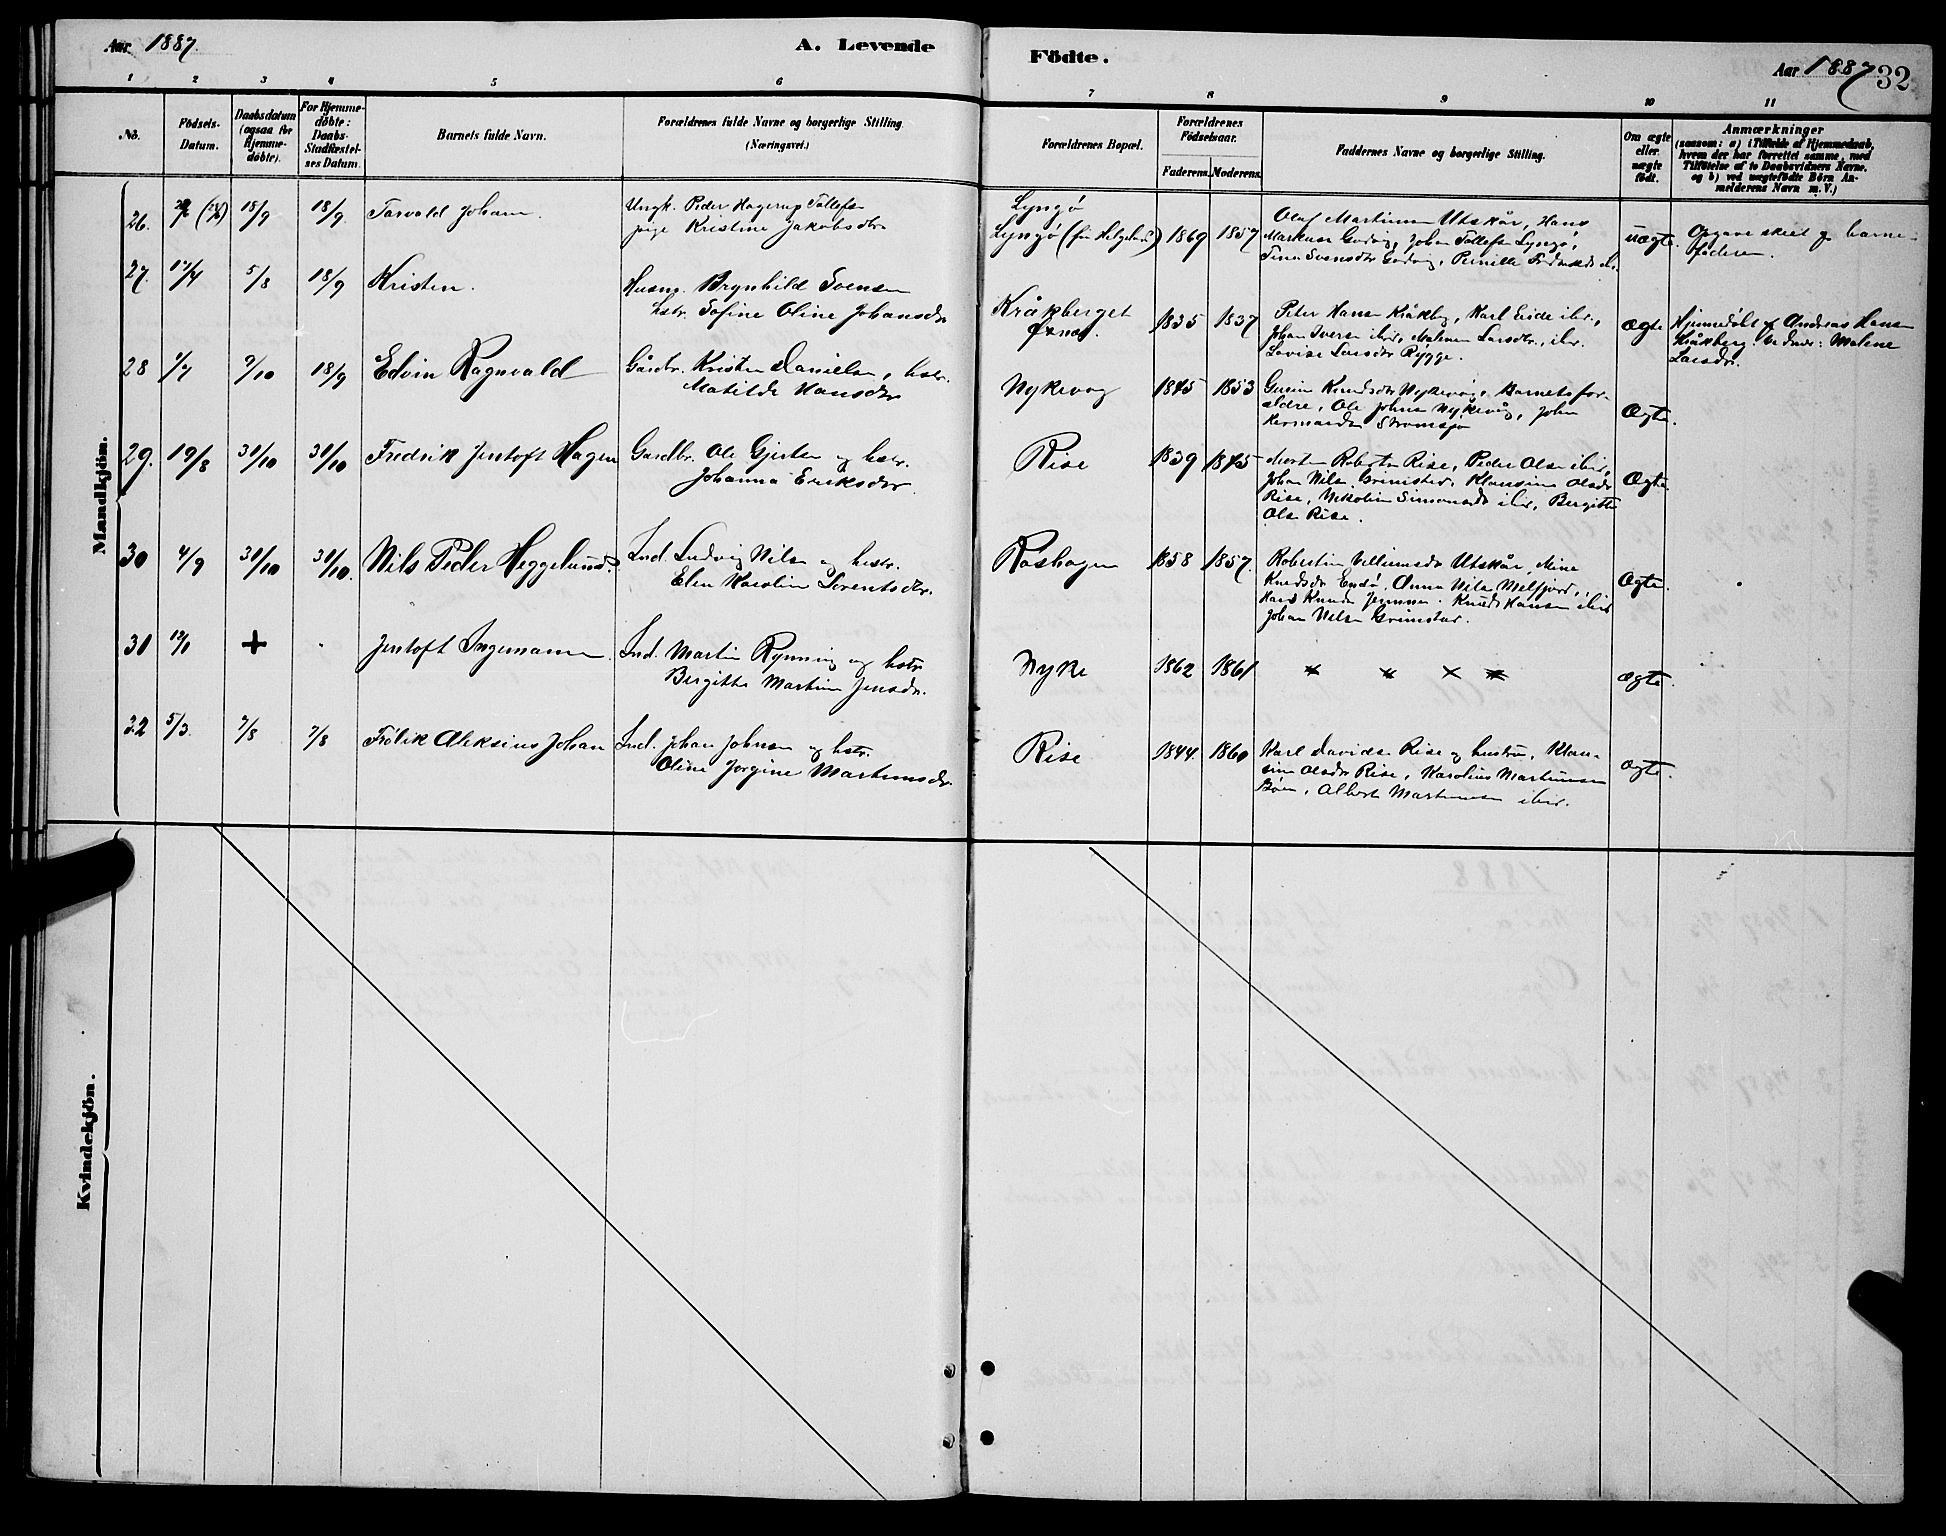 Aar 1887.
A. Levende
Födte.
Aar 1887
32
1 2 3 4 5 6 7 8 9 10 11
No.
Födsels-
Datum.
Daabsdatum
(ogsaa for
Hjemme-
döbte).
For Hjemme-
döbte:
Daabs-
Stadfæstel-
ses Datum.
Barnets fulde Navn.
Forældrenes fulde Navne og borgerlige Stilling.
(Næringsvei.)
Forældrenes Bopæl.
Forældrenes
Födselsaar.
Faderens. Moderens.
Faddernes Navne og borgerlige Stilling.
Om ægte
eller
uægte
födt.
Anmærkninger
(saasom: a) i Tilfælde af Hjemmedaab,
hvem der har forrettet samme, med
Tilföielse af to Daabsvidners Navne,
og b) ved uægtefödte Börn An-
melderens Navn m. V.)
Mandkjön.
26. 18/9 18/9. Torvald Johan.
Ungk. Peder Hagerup Tollefsen
pige Kristine Jakobsdtr
Lyngö
Lyngö (för Helgeland) 1869 1857
Olaf Martinsen Utskår, Hans
Markusen Godvig, Johan Tollefsen Lyngö,
Tina Svensdtr Godvig, Pernille
uægte. Opgave skeet af barne-
faderen.
27. 5/8 18/9 Kristen.
Husm. Brynhild Svensen
hstr. Sofine Oline Johansdtr
Kråkberget
1835 1837
Peter Hansen Kråkbg, Karl Eide ibid.,
Johan Iversen ibid, Malene Larsdtr., ibd.
Lovise Larsdtr Rygge.
Ægte Hjemmedöbt af Andreas Hansen
Kråkberg. Vidner: Malene
Larsdtr.
28 9/10 18/9 Edvin Ragnvald
Gårdbr. Kristen Danielsen, hstr.
Matilde Hansdtr
Nykevåg 1845 1853
Knudsdtr Nykevåg, Barnets for-
ældre, Ole Johnsen Nykevåg, John
Ægte.
29. 19/8 31/10 31/10 Fredrik Jentoft Hagen
Gardbr. Ole Gjertsen og hstr.
Johanna Eriksdtr.
Rise 1839 1845
Morten Robertsen Rise, Peder Olsen ibid,
Johan Nilsen Grimstad, Klausine Olsdtr
Rise, Nikoline Simonsdtr ibid, Bergitte
Olsen Rise.
Ægte.
30 4/9 31/10 31/10. Nils Peder Heggelund.
Ind. Ludvig Nilsen og hustr.
Elen Karoline Lorentsdtr.
Röshagen 1858 1857.
Robertine Villumsdtr Utskår, Mine
Knudsdtr Endö, Anna Nilsen Melfjord,
Hans Knudsen Jennsen. Knud Hansen ibid
Johan Nilsen Grimstad.
Ægte.
31 + Jentoft Ingemann.
Ind. Martin Rynning og hstr
Bergitte Martine Jensdtr.
Nyke 1862 1861
ægte.
32 5/3. 7/8 7/8 Frölik Aleksius Johan
Ind. Johan Johnsen og hstr.
Oline Jorgine Martinusdtr.
Rise 1844. 1860
Karl Davidsen Rise og hustru, Klau-
sine Olsdtr Rise, Karolius Martinussen
Böen, Albert Martinussen ibid.
ægte.
Kvindekjön.